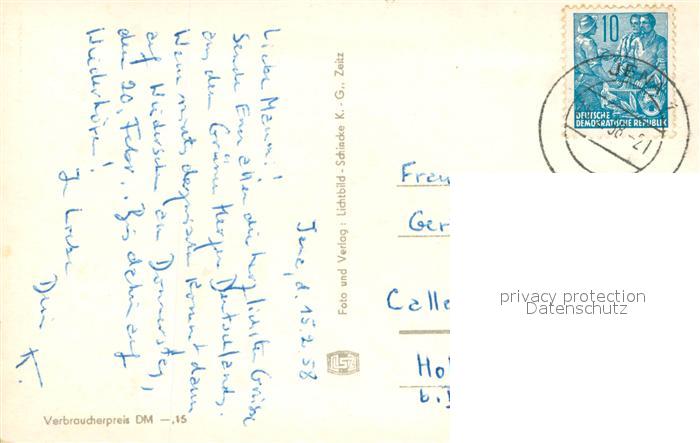 Jena, d. 15.2.58
Liebe Mammi!
Sende Euch allen die herzlichsten Grüsse
aus dem Grünen Herzen Deutschlands.
Wenn nichts dazwischen kommt dann
auf Wiedersehen am Donnerstag,
den 20. Febr.. Bis dahin auf
Wiederhören!
In Liebe
Dein K.
Foto und Verlag: Lichtbild-Schincke K.-G., Zeitz
Verbraucherpreis DM —,15
10
DEUTSCHE
DEMOKRATISCHE REPUBLIK
JENA
58-21
Frau
Ger
Calle
Hol
privacy protection
Datenschutz